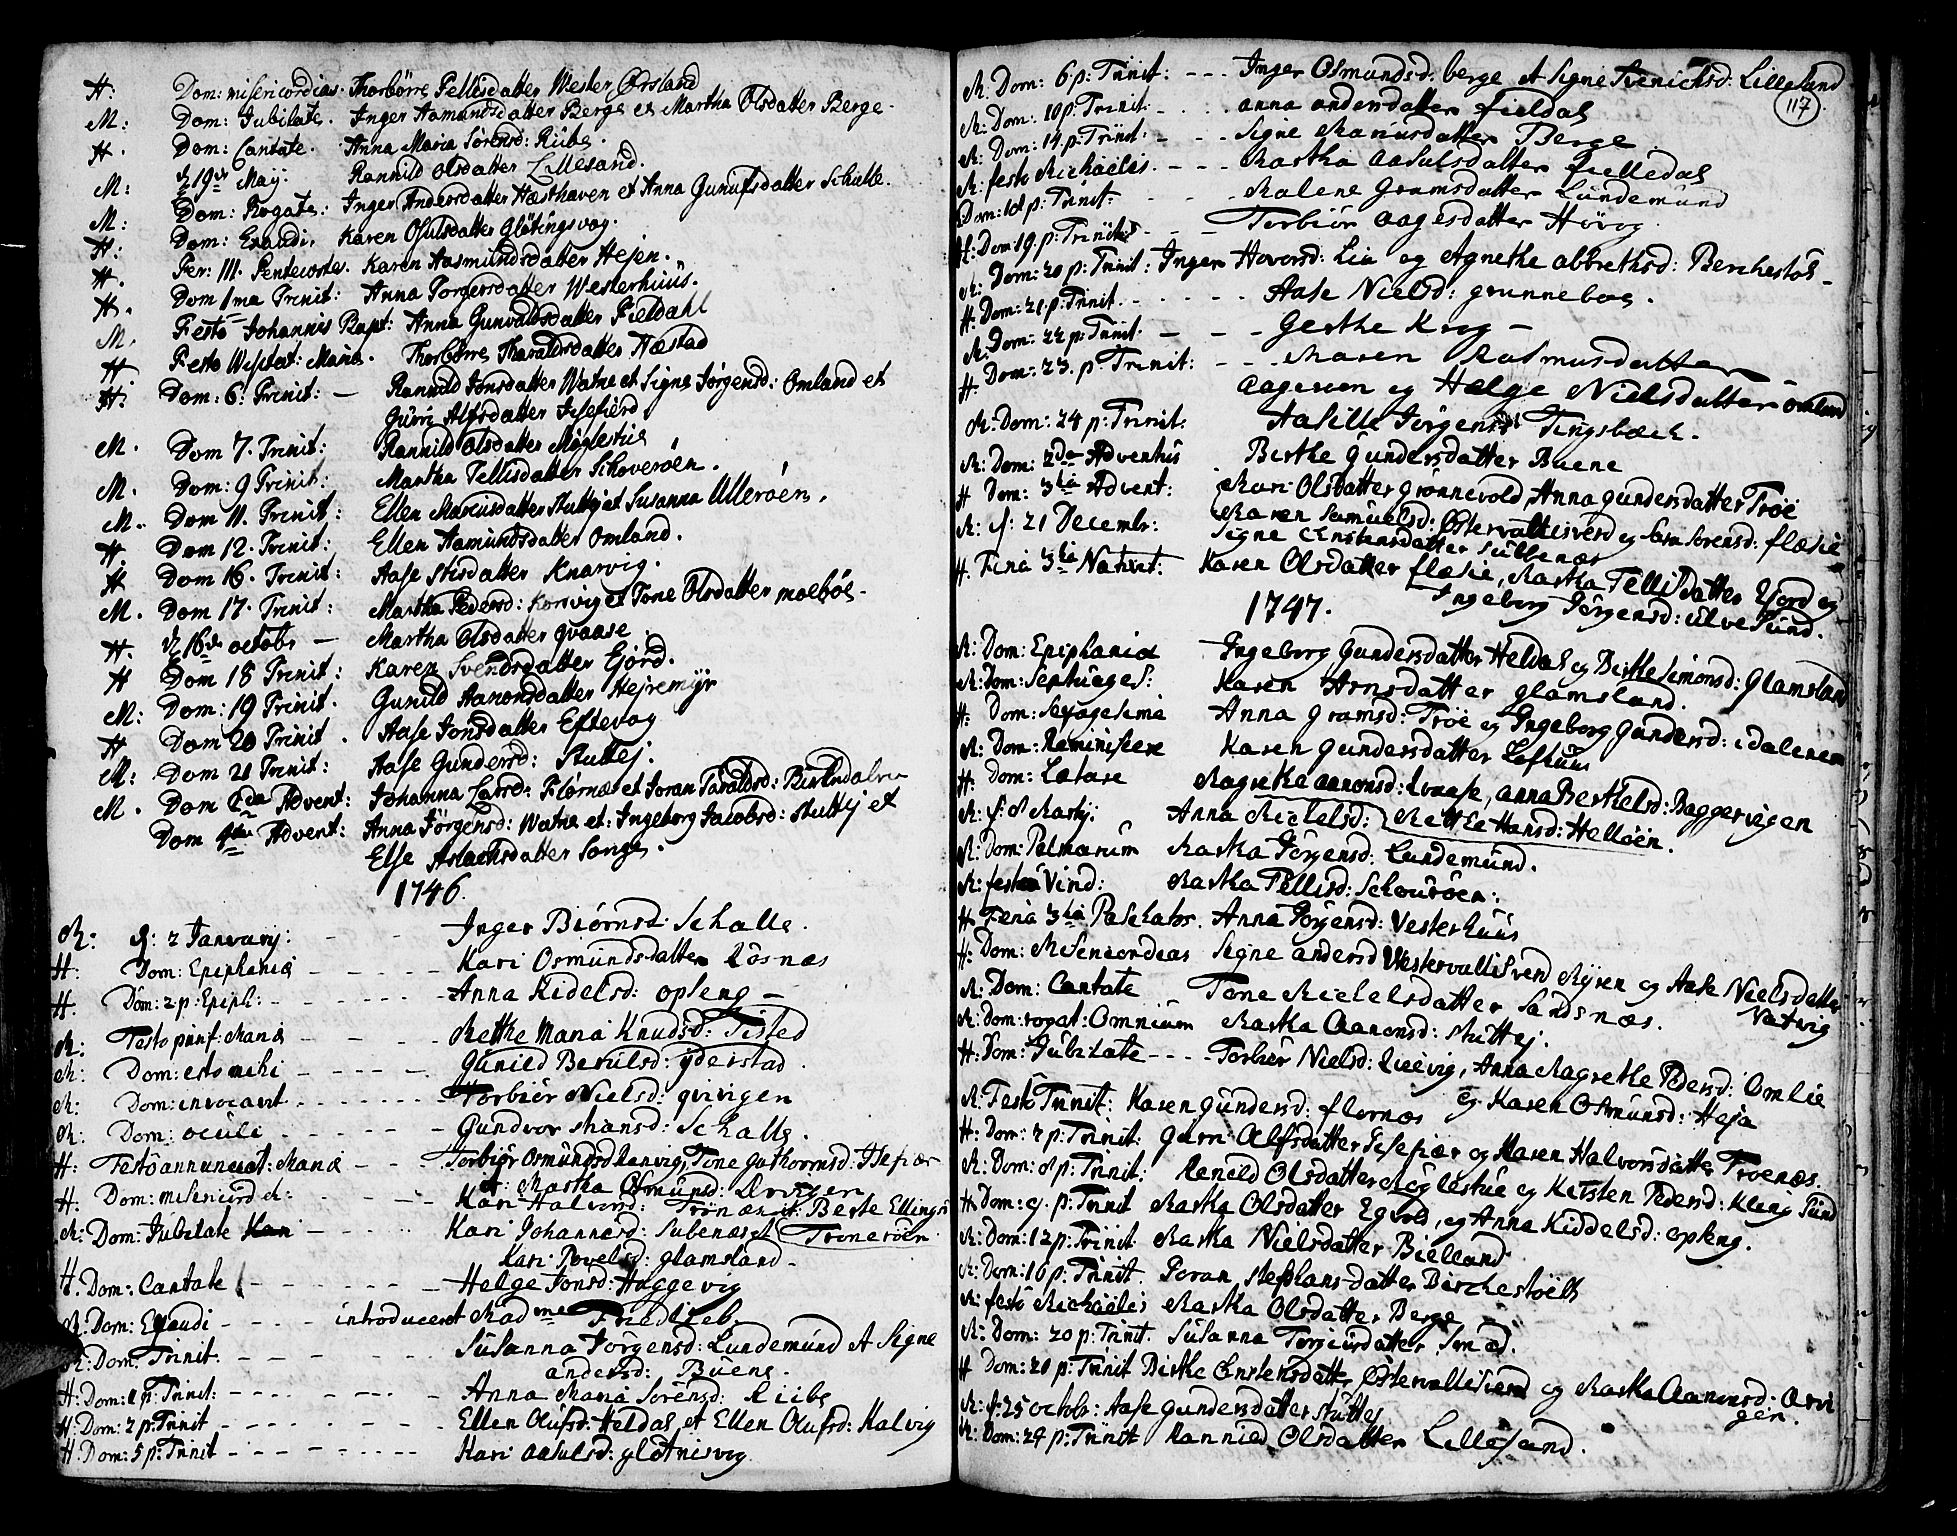 H: Dom: misericordias. Thorbörre Tellisdatter Wester Ørsland
M: Dom: Jubilate. Inger Aamundsdatter Berge et Martha Olsdatter Berge.
H. Dom: Cantate. Anna Maria Sörensd: Riibe.
M: d 19de May. Rannild Olsdatter Lillesand.
M: Dom: Rogate: Inger Andersdatter Hæsthaven et Anna Gunulfsdatter Schalle.
H: Dom: Exaudi. Karen Osulsdatter Glötingsvog.
H. Fer: III. Pentecostes. Karen Aasmundsdatter Hejen.
H. Dom 1ma Trinit: Anna Torgersdatter Westerhuus.
M. Festo Johannis Bapt: Anna Gunvaldsdatter Fieldahl
H. Festo Visitat: Mariæ. Thorbörre Tharaldsdatter Hæstad
H: Dom: 6. Trinit: — Rannild Jonsdatter Watne et Signe Jörgensd: Omland et
Guri Alfsdatter Isefierd.
M. Dom 7. Trinit: Rannild Olsdatter Möglestue
M. Dom: 9 Trinit: Martha Tellisdatter Schoveröen.
M. Dom 11. Trinit: Ellen Mariusdatter Stuttej et Susanna Ulleröen.
H. Dom 12. Trinit: Ellen Aamundsdatter Omland.
H Dom 16. Trinit: Aase Stisdatter Knarvig.
M. Dom 17. Trinit: Martha Pedersd: Korsvig et Tone Olsdatter moeböe.
H. d 16de octobr — Martha Olsdatter Qvaase.
H Dom 18 Trinit: Karen Svendsdatter Ejörd.
M: Dom: 19 Trinit. Gunild Aanonsdatter Hejremyr
H Dom 20 Trinit. Aase Jonsdatter Eftevog
M: Dom 21 Trinit: Aase Gundersd: Stuttej.
M. Dom 2da Advent: Johanna Larsd: Flörnæs et Joran Taraldsd:
Dom 4ta Advent: Anna Jörgensd: Watne et: Ingeborg Jacobsd: Stuttej et
Else Aslachsdatter Songe.
1746.
M: d: 2 January: - - Inger Biörnsd: Schalle.
H: Dom: Epiphaniæ - - - - Kari Osmundsdatter Rösnæs
H. Dom: 2 p: Epiph: - - - - - Anna Kidelsd: opleng —
M: Festo purif: Mariæ - - - - Mette Maria Knudsd: Tisted
M: Dom: estomihi - - - - - Gunild Berulsd: yderstad.
M: Dom: invocavit - - - - - - Torbiör Nielsd: qvivigen
M: Dom: oculi - - - - - Gundvor Hansd: Schalle.
H: Festo annunciat: Mariæ - - - Torbiör Osmundsd Ranvig, Tone Guthormsd: Isefiær
et Martha Osmunsd:
H. Dom: misericord d: - - - - Kari Halvorsd: Trönæs et Berte Ellingsd
M: Dom: Jubilate - - - Kari Johannesd: Subenæs et Troneröen
Kari Povelsd: glamsland.
H. Dom: Cantate - - - - - Helge Jonsd: Haggevig
M. Dom: Exaudi - - - - introduceret Madme Friedlieb.
M: Dom: Trinit. - - - - - Susanna Jörgensd: Lundemund et Signe
andersd: Buene.
H: Dom: 1 p: Trinit: - - - - - - Anna Maria Sörensd: Riibe
H: Dom: 2 p: Trinit - - - - - Ellen Olufsd: Heldal et Ellen Olufsd: Kalvig
H: Dom: 5 p: Trinit - - - - - Kari Aasulsd: glötnisvog
117
M: Dom: 6 p: Trinit: - - - Inger Osmundsd: berge et Signe Lillesand
M: Dom: 10 p: Trinit. - - anna andersdatter fieldal
M: Dom: 14 p: Trinit: - - - Signe Mariusdatter Berge
M: festo Michaelis. - - - Martha Aasulsdatter fielledal
Dom: 18 p: Trinit: - - - Malene Gramsdatter Lundemund
H: Dom 19. p: Trinit - - - Torbiör aagesdatter Hövog
M: Dom: 20 p: Trinit: Inger Hoversd: Lia og Agnethe albrethsd: Berchestöl -
H: Dom: 21 p: Trinit. - - - - Aase Nielsd: grunneboe.
M: Dom: 22 p: Trinit - - - Gerthe Krog —
H: Dom: 23. p: Trinit: - - - Maren Rasmusdatter
aagerøen og Helge Nielsdatter omland
M: Dom: 24 p: Trinit: Aasille Jörgensd Tingsbæch.
M: Dom: 2da Adventus Berthe Gundersdatter Buene
H Dom: 3tia Advent: Mari Olsdatter Grönnevold, Anna gundersdatter Tröe
M: d: 21 Decembr: Maren Samuelsd: Østervallesverd og Sara Sorensd: flæsie
Signe Enstensdatter Subbenæs
H. Feria 3tia Nativit: Karen Olsdatter flæsie, Martha Tellisdatter Eford og
1747. Ingeborg Jörgensd: ulvesund.
M: Dom: Epiphaniæ Ingeborg Gundersdatter Heldal og Birthe Simonsd: Glamsland
M: Dom: Septuages: Karen Arnsdatter glamsland.
H: Dom: Sexagesima Anna Gramsd: Tröe og Ingeborg Gundersd: i dalenem
M: Dom: Reminiscere Karen Gundersdatter Lofhuus
H: Dom: Lætare Magrethe aanonsd: Qvaase, anna Berthelsd: Baggervigen
M: d: 8 Martij: Anna Michelsd: Methe Hansd: Hellöen.
M: Dom: Palmarum Martha Jörgensd: Lundemund.
M: festo Vind: Martha Tellisd: Schouröen:
H: Feria 3tia Paschatos. Anna Jörgensd: Vesterhuus
H: Dom: Misericordias Signe andersd Westervallesverd Myren og Aase Nielsdatter
M: Dom: Cantate Tone Michelsdatter Sandsnæs. Natvig
M: Dom: rogat: Omnium Martha Aanonsd: Stuttej.
H: Dom: Jubilate - - - Torbiör Nielsd: Qvivig, Anna Magrethe Pedersd: Omlie
og Karen Osmunsd: Heja
M: Festo Trinit: Karen gundersd: flornæs
H: Dom: 2 p: Trinit: Guri Alfsdatter Isefiær og Maren Halvorsdatter Troenæs.
M: Dom: 8 p: Trinit: Renild Olsdatter Möglestue og Kirsten Pedersd: Kling Sund
H: Dom: 9. p: Trinit Martha Olsdatter Egvold, og Anna Kiddelsd: opleng.
M: Dom: 12 p: Trinit Martha Nielsdatter Bielland.
M: Dom: 16 p: Trinit. Joran Stephansdatter Birchestöelt
M: festo Michaelis Martha Olsdatter Berge
M: Dom: 20 p: Trinit. Susanna Torgiursdatter Smæd.
H Dom: 20 p: Trinit Birthe Enstensdatter Østervallesverd og Martha Aanonsd: Qvivi
gen.
M: d: 25 octobr: Aase gundersdatter Stuttej
M: Dom: 24 p: Trinit Rannild Olsdatter Lillesand.